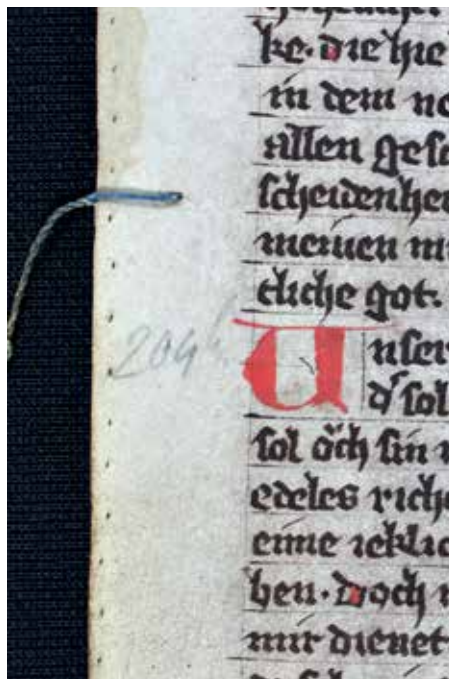 ke. die hie
in dem no
allen gesc
scheidenhei
meinen mi
cliche got.
204
Unser
dʾ sol
sol och sin
edeles riche
eine ieklic
ben. Doch
mir dienet